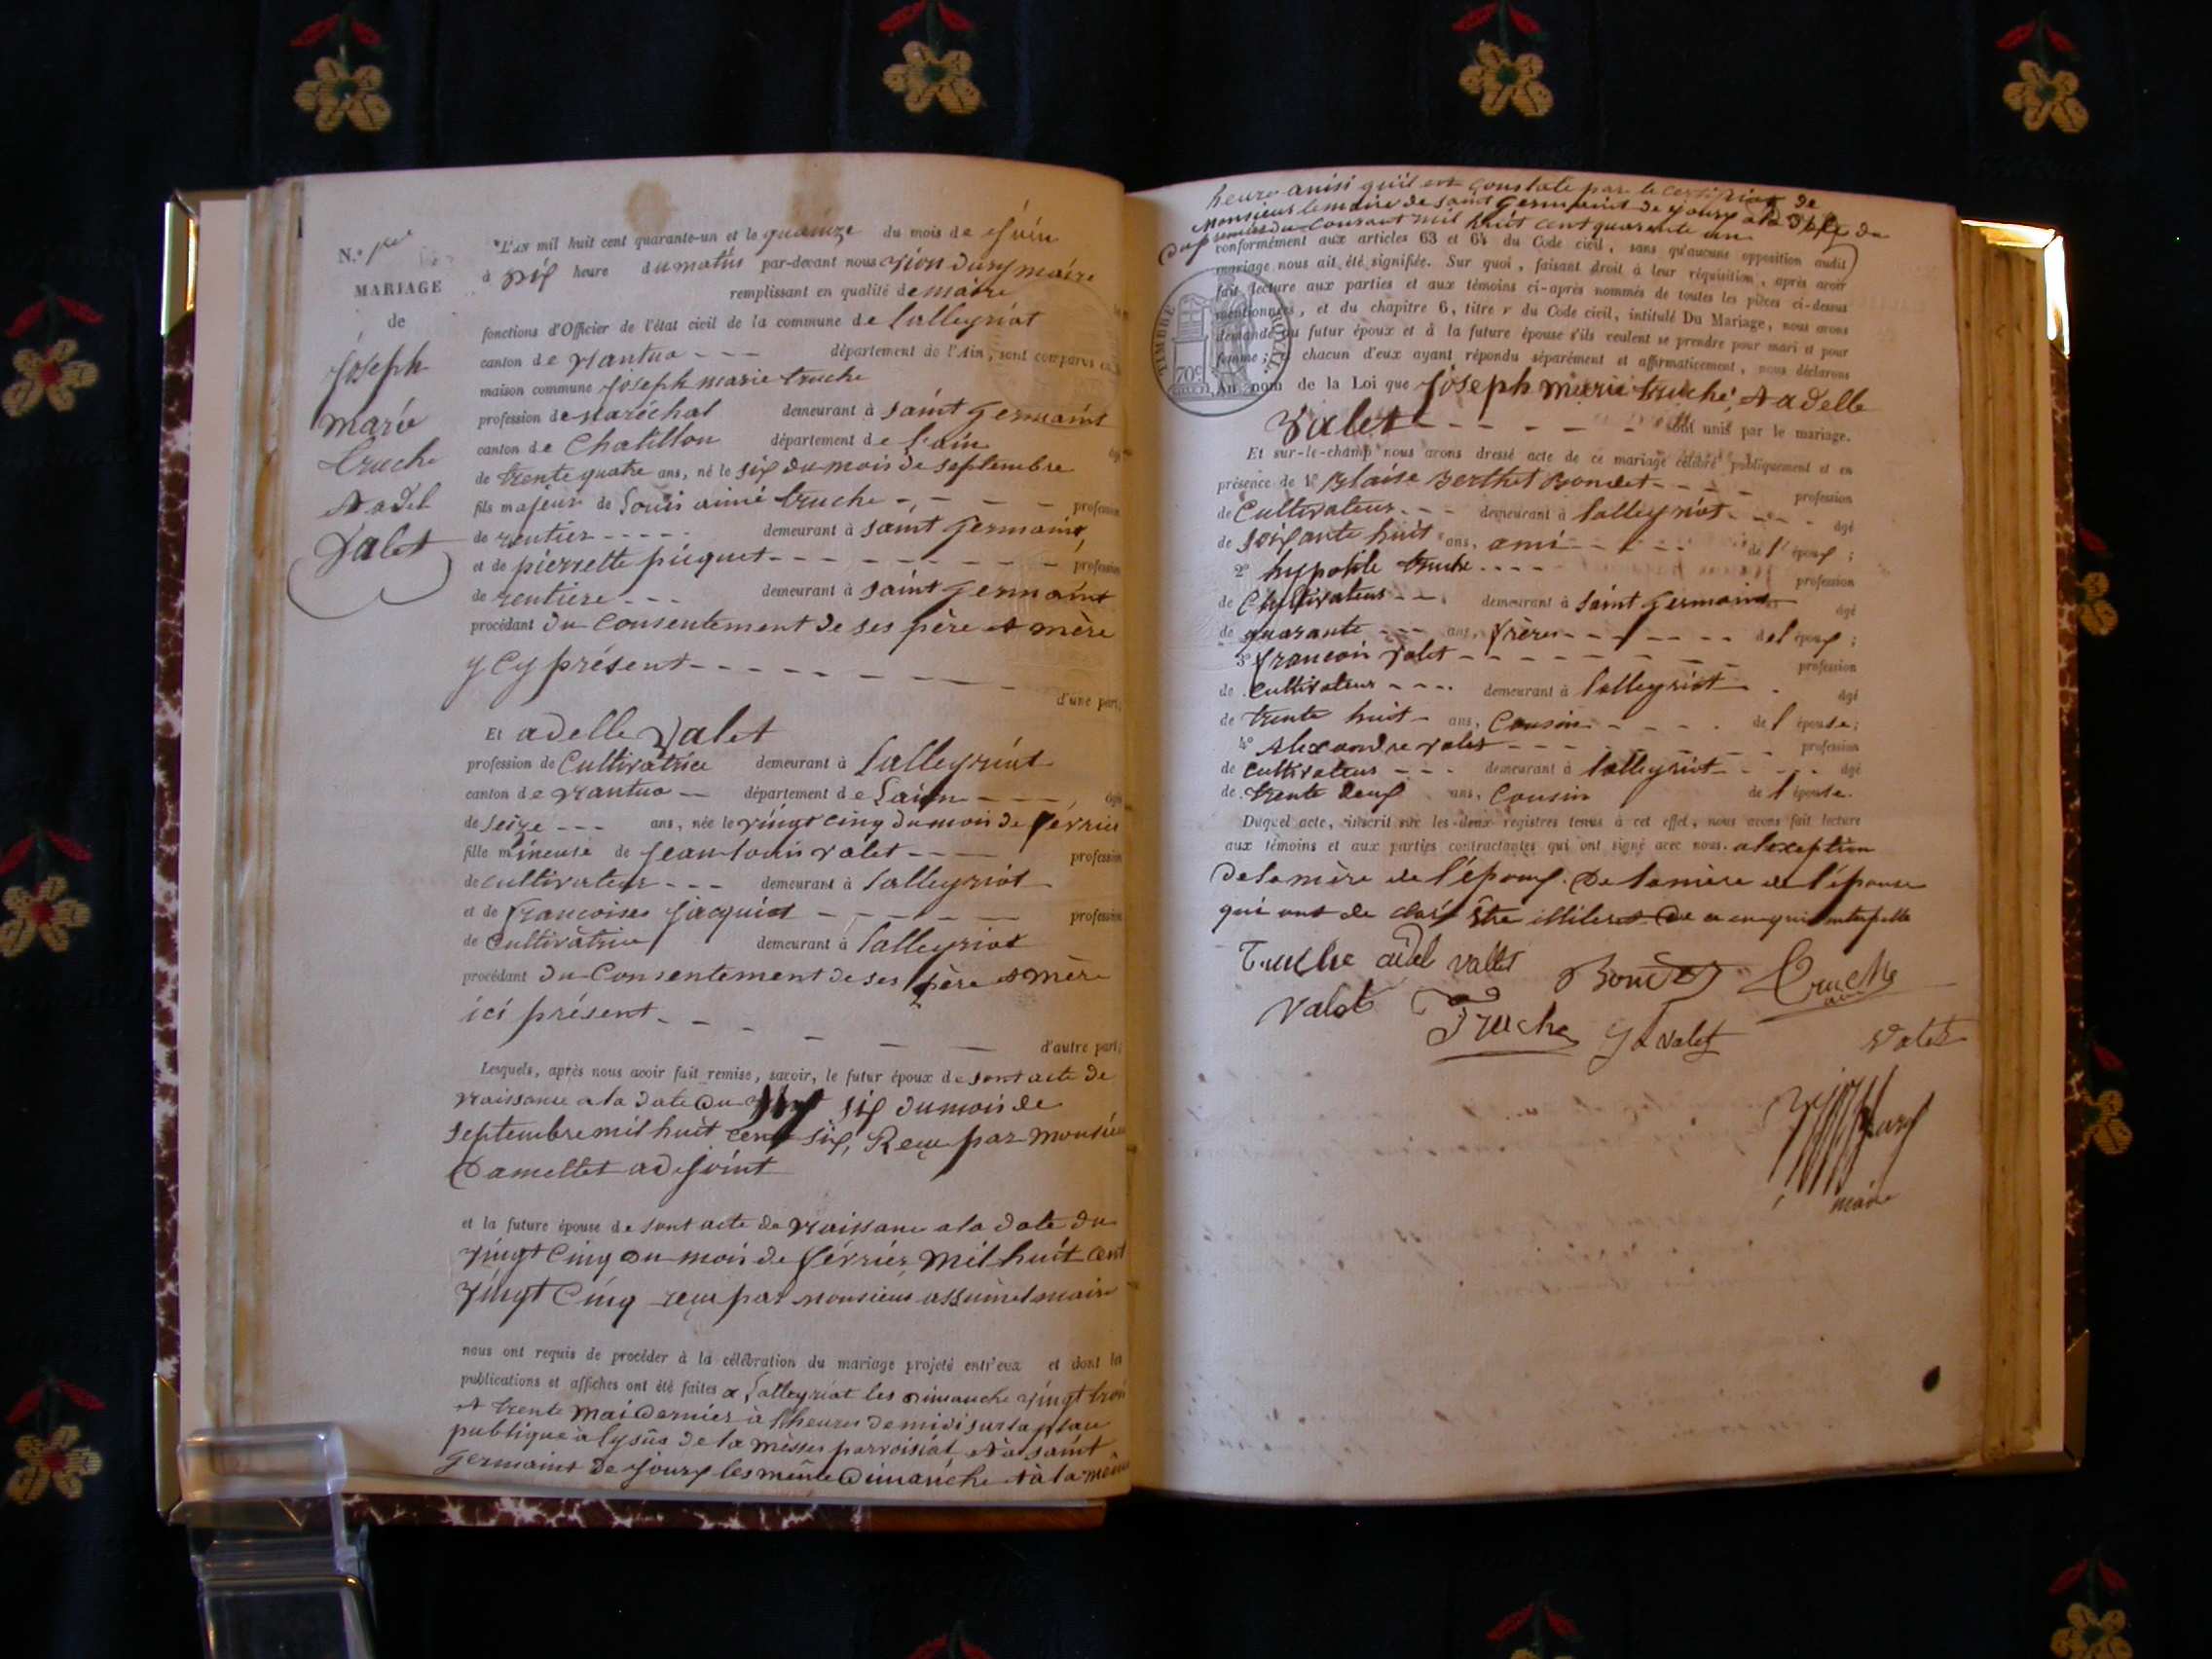 N.º 1er
MARIAGE
de
joseph
marie
truche
et adel
Valet
L'AN mil huit cent quarante-un et le quainze du mois de juin
à dix heure du matin par-devant nous maire
remplissant en qualité de maire
fonctions d'Officier de l'état civil de la commune de lalleyriat
canton de nantua - - - département de l'Ain, sont comparus en la
maison commune joseph marie truche
profession de maréchal demeurant à saint germaint
canton de Chatillon département de l'ain âgé
de trente quatre ans, né le six du mois de septembre
fils majeur de louis aimé truche - - - - profession
de rentier - - - - - demeurant à saint germaint
et de pierrette picquet - - - - - - - - profession
de rentiere - - - demeurant à saint germaint
procédant du consentement de ses père et mère
y cy présent - - - - - - - -
d'une part;
Et adelle valet
profession de Cultivatrice demeurant à lalleyriat
canton de nantua -- département de lain - - - âgée
de seize - - - ans, née le vingt cinq du mois de février
fille mineuse de jean louis valet - - - - profession
de cultivateur - - - demeurant à lalleyriat
et de francoises jacquiot - - - - - - profession
de Cultivatrice demeurant à lalleyriat
procédant du Consentement de ses père et mère
ici présent - - - - - -
d'autre part;
Lesquels, après nous avoir fait remise, savoir, le futur époux de sont acte de
naissance a la date du six du mois de
septembre mil huit cent six, Reçu par monsieur
Damettet adjoint
et la future épouse de sont acte de naissance a la date du
vingt Cinq du mois de février mil huit cent
vingt Cinq reçu par monsieur maire
nous ont requis de procéder à la célébration du mariage projeté entr'eux et dont les
publications et affiches ont été faites a lalleyriat les dimanche vingt trois
et trente mai dernier à lheures de midi sur la place
publique a lysüe de la messes parroisial, et à saint
germaint de joux les même dimanche et à la même
heure ainsi qu'il est constate par le certificat de
Monsieur le maire de saint germaint de joux a la date du
du courant mil huit cent quarante un
conformément aux articles 63 et 64 du Code civil, sans qu'aucune opposition audit
mariage nous ait été signifiée. Sur quoi, faisant droit à leur réquisition, après avoir
fait lecture aux parties et aux témoins ci-après nommés de toutes les pièces ci-dessus
mentionnées, et du chapitre 6, titre v du Code civil, intitulé Du Mariage, nous avons
demandé au futur époux et à la future épouse s'ils veulent se prendre pour mari et pour
femme; et chacun d'eux ayant répondu séparément et affirmativement, nous déclarons
TIMBRE ROYAL
70c
Au nom de la Loi que joseph marie truche, et adelle
Valet - - - - - - - sont unis par le mariage.
Et sur-le-champ nous avons dressé acte de ce mariage célébré publiquement et en
présence de 1º Blaise Berthet Bondet - - - - profession
de Cultivateur - - - demeurant à lalleyriat - - - - âgé
de soixante huit ans, ami - - - - de l'époux;
2º hypolite truche - - - - profession
de Cultivateur - - demeurant à saint germaint âgé
de quarante - - - ans, frères - - - - - - de l'époux;
3º francois valet - - - - - - - - profession
de cultivateur - - - - demeurant à lalleyriat - - âgé
de trente huit - ans, Cousin - - - - de l'épouse;
4º Alexandre valet - - - - - - - profession
de cultivateur - - - demeurant à lalleyriat - - - - âgé
de trente deux ans, Cousin de l'épouse.
Duquel acte, inscrit sur les deux registres tenus à cet effet, nous avons fait lecture
aux témoins et aux parties contractantes qui ont signé avec nous. a lexception
de la mère de l'époux. De la mère de l'épouse
qui ont de claré être de ce enquis
Truche adel vallet Bondet Truche
Valet Truche J L valet Valet
maire